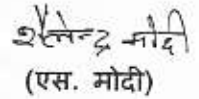 शैलेन्द्र मोदी
(एस. मोदी)